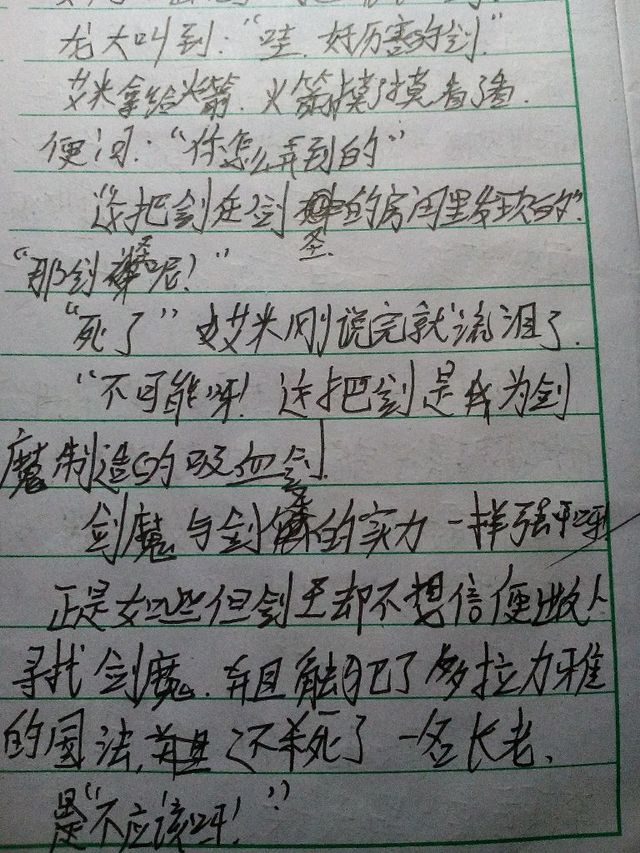 龙大叫到:“哇.好厉害的剑.”
艾米拿给火箭.火箭摸了摸看了看.
便问:“你怎么弄到的”
这把剑在剑圣的房间里发现的”.
“那剑圣呢!”
“死了”艾米刚说完就流泪了.
“不可能呀!这把剑是我为剑
魔制造的吸血剑.
剑魔与剑圣的实力一样强呀
正是如些但剑王却不想信便派人
寻找剑魔.并且触犯了多拉力雅
的国法,还杀死了一名长老.
是“不应该呀!”